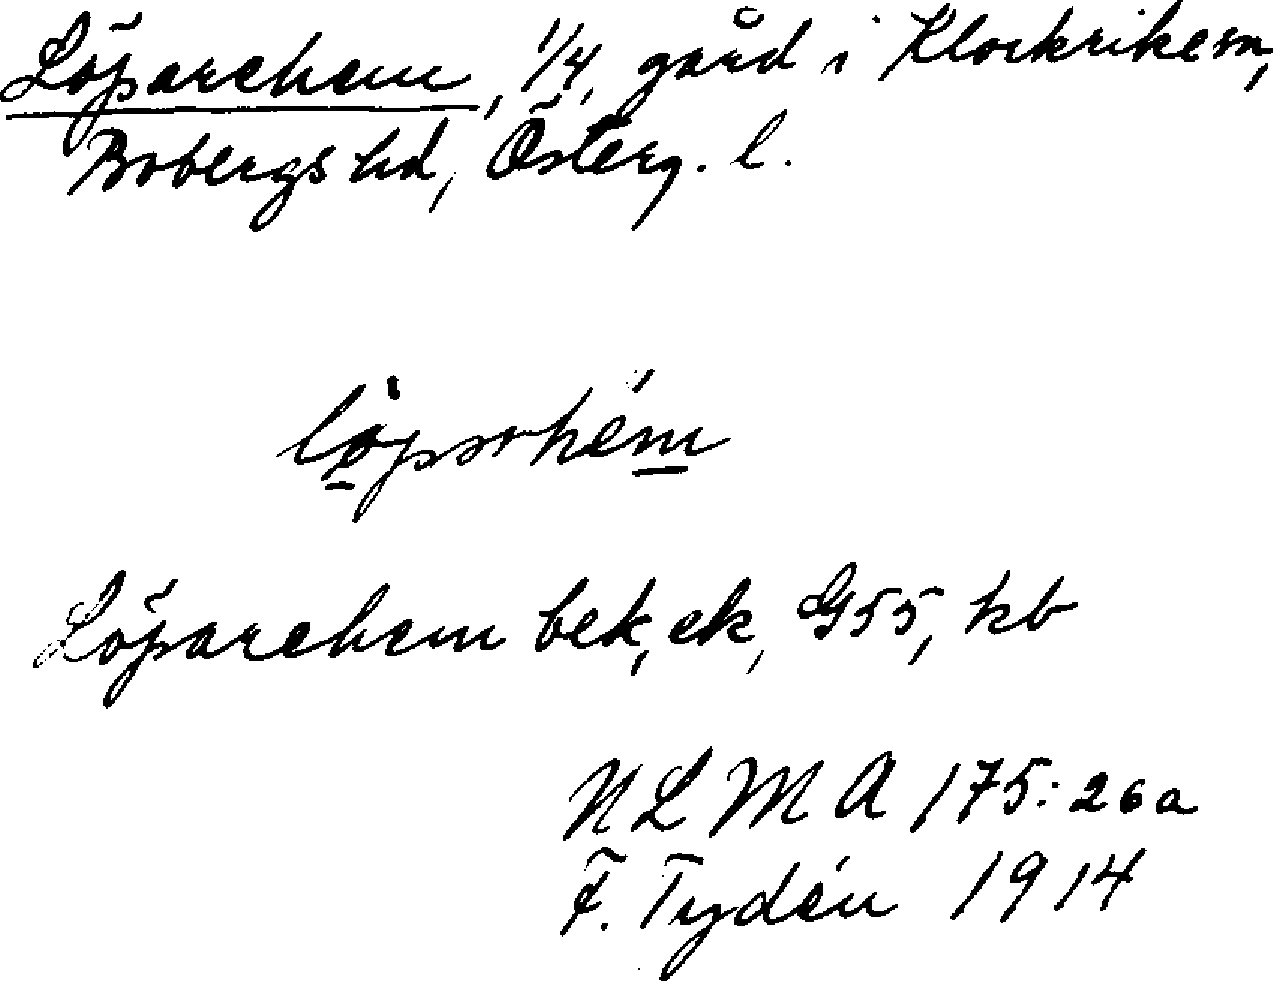 Löparehem, 1/4, gård i Klockrike sn,
Bobergs hd, Österg. l.
Löparehem bek, ek, G55, kb
N L M A 175:26a
F. Tydén 1914